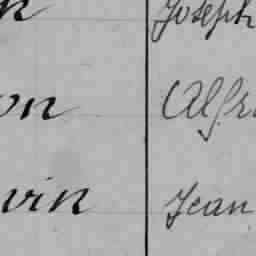 Joseph
on Alfr
vin Jean